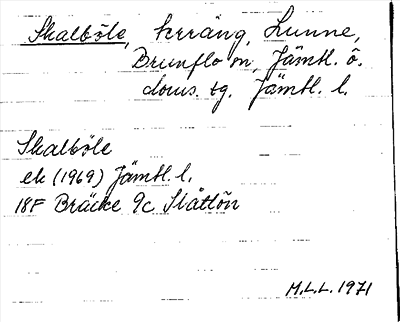 Skalböle, kräng, Lunne,
Brunflo sn, Jämtl. ö.
doms. tg. Jämtl. l.
Skalböle
ek (1969) Jämtl. l.
18F Bräcke 9c Slåttön
M.L.L. 1971